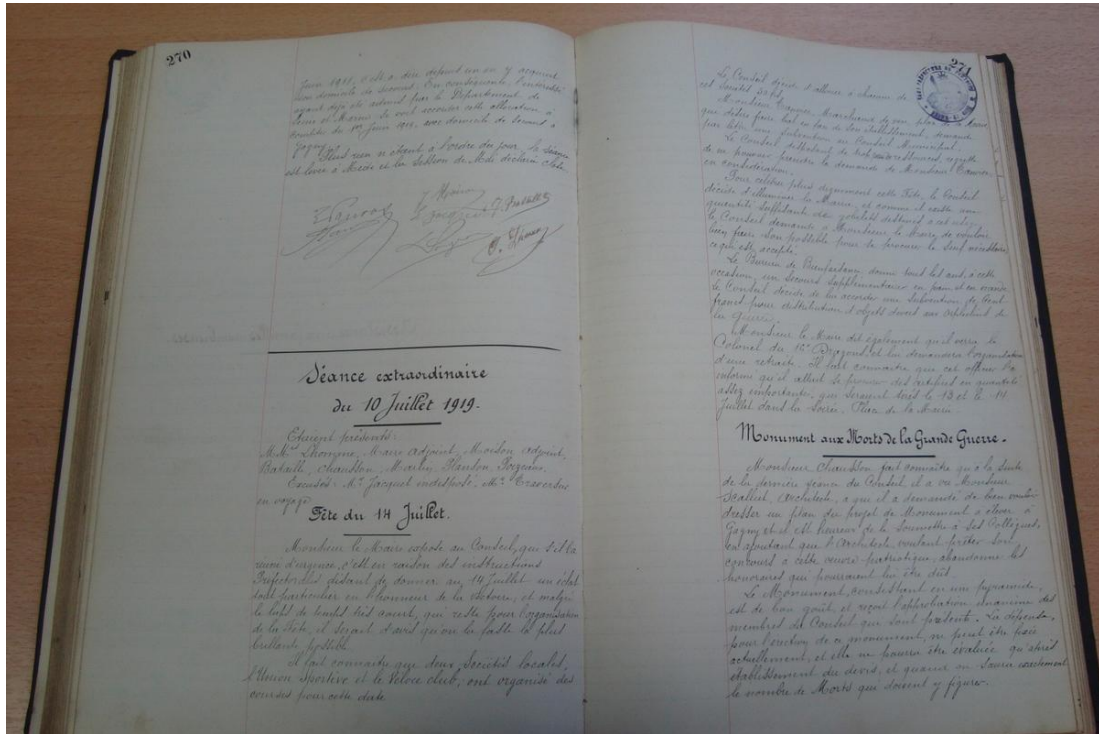 270
Juin 1918, elle a dére défunt un an y acquérir
son domicile de secours. En conséquence, l'intéressé
ayant déjà été admis par le Département de
Seine et Marne se voit accorder cette allocation à
compter du 1er Juin 1919, avec domicile de secours à
Gagny.
Plus rien n'étant à l'ordre du jour, la séance
est levée à
Séance extraordinaire
du 10 Juillet 1919.
Etaient présents:
M.Mrs Lhomme, Maire adjoint, Moison adjoint,
Bataille, Chausson, Martin, Planson,
Excusés: Mr Jacquet indisposé, Mr
en voyage
Fête du 14 Juillet.
Monsieur le Maire expose au Conseil, que s'il l'a
réuni d'urgence, c'est en raison des instructions
Préfectorales disant de donner au 14 Juillet un éclat
tout particulier en l'honneur de la Victoire, et malgré
le laps de temps très court, qui reste pour l'organisation
de la Fête, il serait d'avis qu'on la fasse la plus
brillante possible.
Il fait connaître que deux Sociétés locales,
l'Union Sportive et le Véloce club, ont organisé des
courses pour cette date
271
Le Conseil décide d'allouer à chacune de
ces Sociétés
Monsieur
que désire faire bal en face de son établissement, demande
par lettre une subvention au Conseil Municipal.
Le Conseil regrette
de ne pouvoir prendre la demande de Monsieur
en considération.
Pour célébrer plus dignement cette Fête, le Conseil
décide d'illuminer la Mairie, et comme il existe une
quantité suffisante de godets destinés à cet effet,
le Conseil demande à Monsieur le Maire de vouloir
bien faire son possible pour se procurer le suif nécessaire,
ce qui est accepté.
Le Bureau de Bienfaisance donne tous les ans, à cette
occasion, un secours supplémentaire en pain et en viande,
le Conseil décide de lui accorder une subvention de Cent
francs pour distribution d'objets divers aux orphelins de
la Guerre.
Monsieur le Maire dit également qu'il verra le
Colonel du Dragons et lui demandera l'organisation
d'une retraite. Il fait connaître que cet officier l'a
informé qu'il allait se procurer des artifices en quantité
assez importante, qui seraient tirés le 13 et le 14
Juillet dans la soirée, Place de la Mairie.
Monument aux Morts de la Grande Guerre.
Monsieur Chausson fait connaître qu'à la suite
de la dernière séance du Conseil, il a vu Monsieur
Scalliet, Architecte, à qui il a demandé de bien vouloir
dresser un plan du projet de Monument à élever à
Gagny et il est heureux de le soumettre à ses Collègues,
en ajoutant que l'Architecte, voulant prêter son
concours à cette œuvre patriotique, abandonne les
honoraires qui pourraient lui être dûs.
Le Monument, consistant en une pyramide,
est de bon goût, et reçoit l'approbation unanime des
membres du Conseil qui sont présents. La dépense,
pour l'érection de ce monument, ne peut être fixée
actuellement, et elle ne pourra être évaluée qu'après
établissement des devis, et quand on saura exactement
le nombre de Morts qui doivent y figurer.